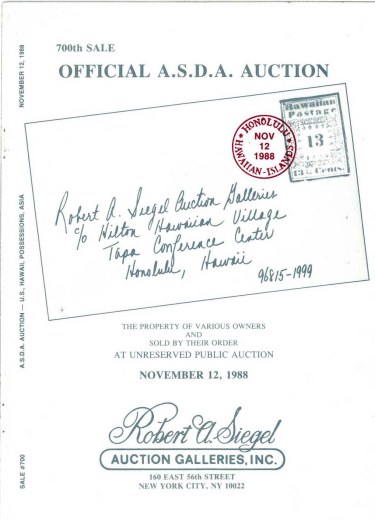 700th SALE
OFFICIAL A.S.D.A. AUCTION
NOVEMBER 12, 1988
A.S.D.A. AUCTION — U.S., HAWAII, POSSESSIONS, ASIA
SALE #700
Hawaiian
Postage
13
13 Cents.
HONOLULU
NOV
12
1988
HAWAIIAN-ISLANDS
Robert A. Siegel Auction Galleries
c/o Hilton Hawaiian Village
Tapa Conference Center
Honolulu, Hawaii
96815-1999
THE PROPERTY OF VARIOUS OWNERS
AND
SOLD BY THEIR ORDER
AT UNRESERVED PUBLIC AUCTION
NOVEMBER 12, 1988
Robert A. Siegel
AUCTION GALLERIES, INC.
160 EAST 56th STREET
NEW YORK CITY, NY 10022